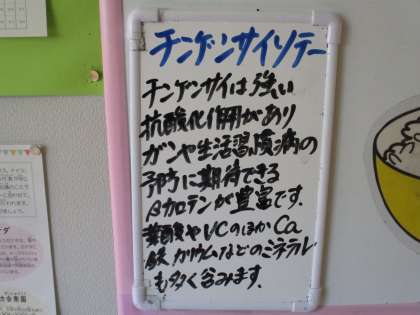 チンゲンサイソテー
チンゲンサイは強い
抗酸化作用があり
ガンや生活習慣病の
予防に期待できる
βカロテンが豊富です.
葉酸やVCのほかCa
鉄 カリウムなどのミネラル
も多く含みます.